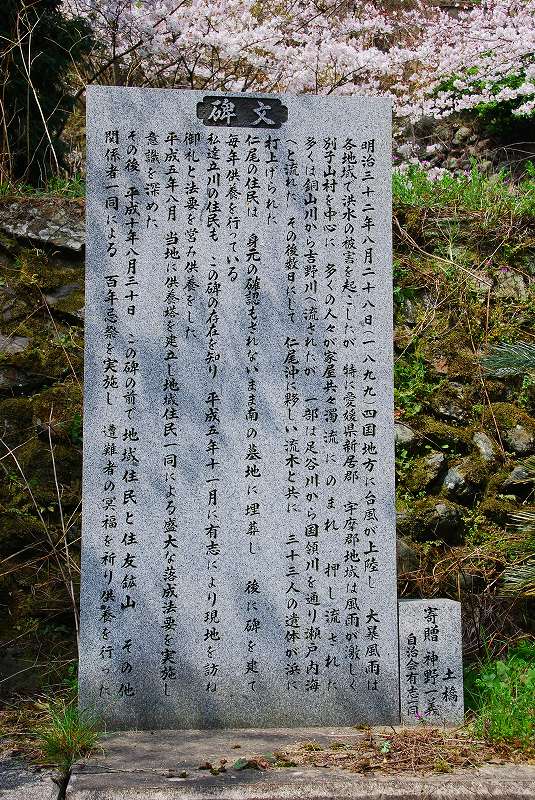 碑文
明治三十二年八月二十八日(一八九九)四国地方に台風が上陸し 大暴風雨は
各地域で洪水の被害を起こしたが 特に愛媛県新居郡 宇摩郡地域は風雨が激しく
別子山村を中心に 多くの人々が家屋共々濁流にのまれ 押し流された
多くは銅山川から吉野川へ流されたが 一部は足谷川から国領川を通り瀬戸内海
へと流れた その後数日して 仁尾沖に夥しい流木と共に 三十三人の遺体が浜に
打上げられた
仁尾の住民は 身元の確認もされないまま南の墓地に埋葬し 後に碑を建て
毎年供養を行っている
私達立川の住民も この碑の存在を知り 平成五年十一月に有志により現地を訪ね
御礼と法要を営み供養をした
平成五年八月 当地に供養塔を建立し地域住民一同による盛大な落成法要を実施し
意識を深めた
その後 平成十年八月三十日 この碑の前で地域住民と住友鉱山 その他
関係者一同による 百年忌祭を実施し 遭難者の冥福を祈り供養を行った
土橋
寄贈 神野一義
自治会有志一同